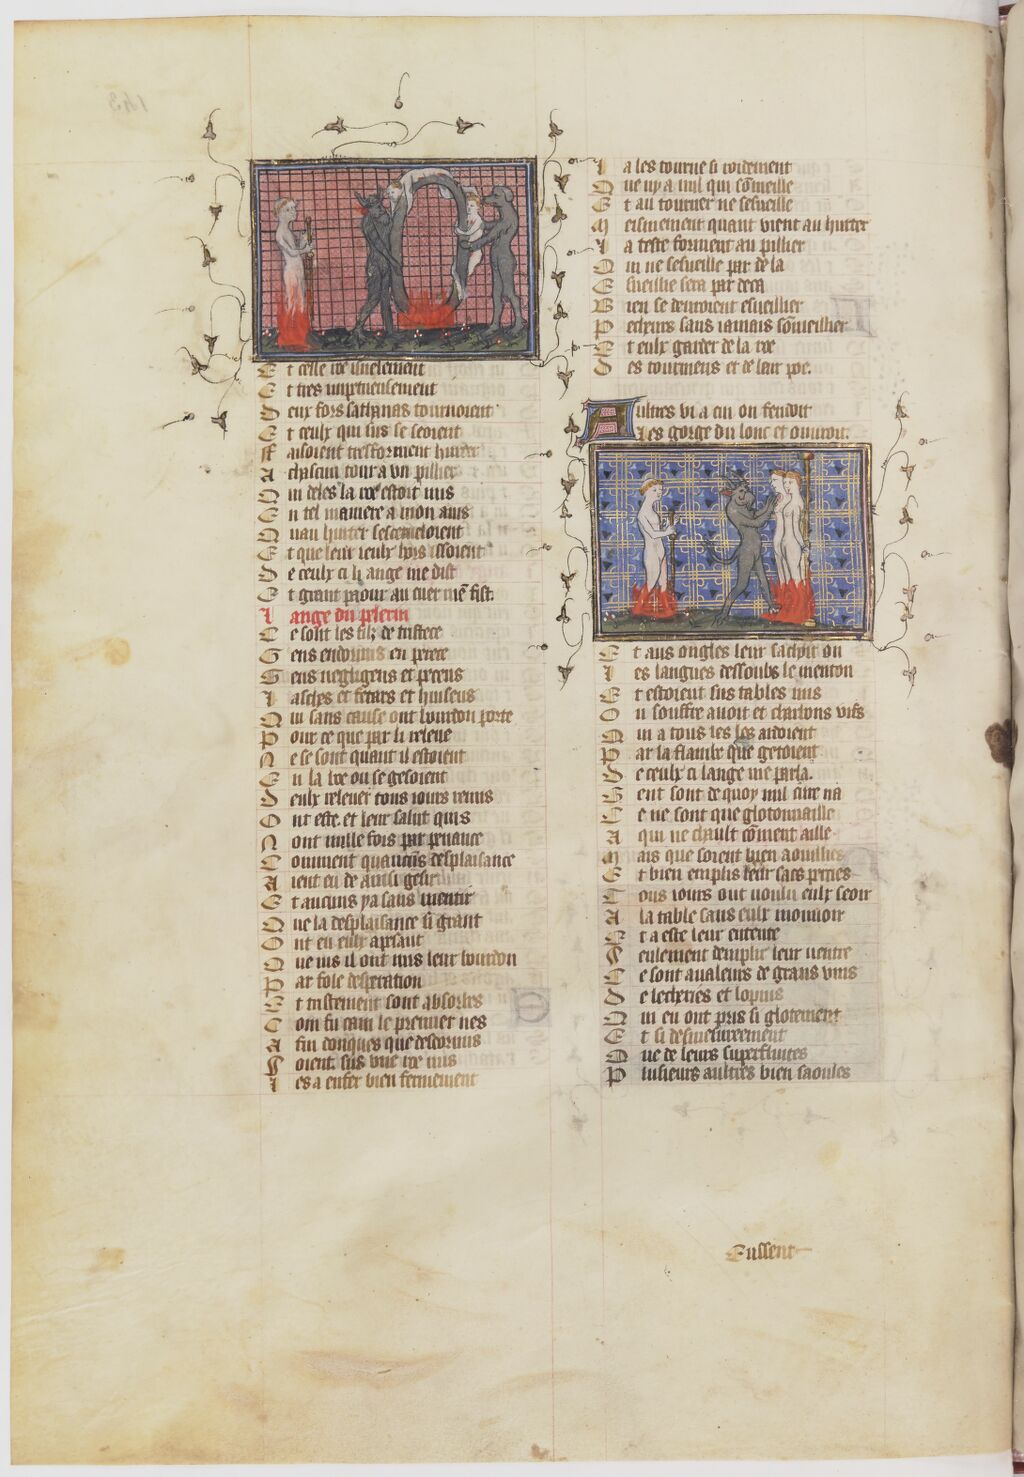 Et celle roe isnelement
Et tres impetueusement
Deux fors sathanas tournoient
Et ceulx qui sus se seoient
Faisoient tresforment hurter
A chascun tour a un pillier
Qui deles la roe estoit mis
En tel maniere a mon avis
Quau hurter
Et que leur ieulx hors issoient
De ceulx ci li ange me dist
Et grant paour au cuer me fist.
Lange du pelerin
Ce sont les filz de tristece
Gens endormis en perece
Gens negligens et precens
Lasches et fetars et huiseus
Qui sans cause ont bourdon porte
Pour ce que par li releve
Ne se sont quant il estoient
En la boe ou se gesoient
Deulx relever tous iours remis
Ont este. et leur salut quis
Nont mille fois par penance
Comment quaucuns desplaisance
Aient eu de ainsi gesir
Et aucuns ya sans mentir
Que la desplaisance si grant
Ont eu eulx apesant
Que ius il ont mis leur bourdon
Par fole desperation
Et tristement sont absorbes
Com fu cain le premier nes
Afin donques que descormis
Soient sus une roe mis
Les a enfer bien fermement
La les tourne si roidement
Que ny a nul qui sommeille
Et au tourner ne sesveille
Meismement quant vient au hurter
La teste forment au pillier
Qui ne sesveille par de la
Esveillie sera par deca
Bien se devroient esveillier
Pecheurs sans iamais sommeillier
Et eulx garder de la roe
Des tourmens et de lair poe.
Aultres vi a cui on fendoit
Les gorge du lonc et ouvroit.
Et aus ongles leur sachoit on
Les langues dessoubs le menton
Et estoient sus tables mis
Ou souffre avoit et charbons vifs
Qui a tous les les ardoient
Par la flambe que getoient
De ceulx ci lange me parla.
Gent sont de quoy nul cure na
Ce ne sont que glotonnaille
A qui ne chault comment aille
Mais que soient bien aouillies
Et bien emplis leur sacs percies
Tous iours ont voulu eulx seoir
A la table sans eulx mouvoir
Et a este leur entente
Seulement demplir leur ventre
Ce sont avaleurs de grans vins
De lecheries et lopins
Qui en ont pris si glotement
Et si desmesureement
Que de leurs superfluites
Plusieurs aultres bien saoules
Eussent